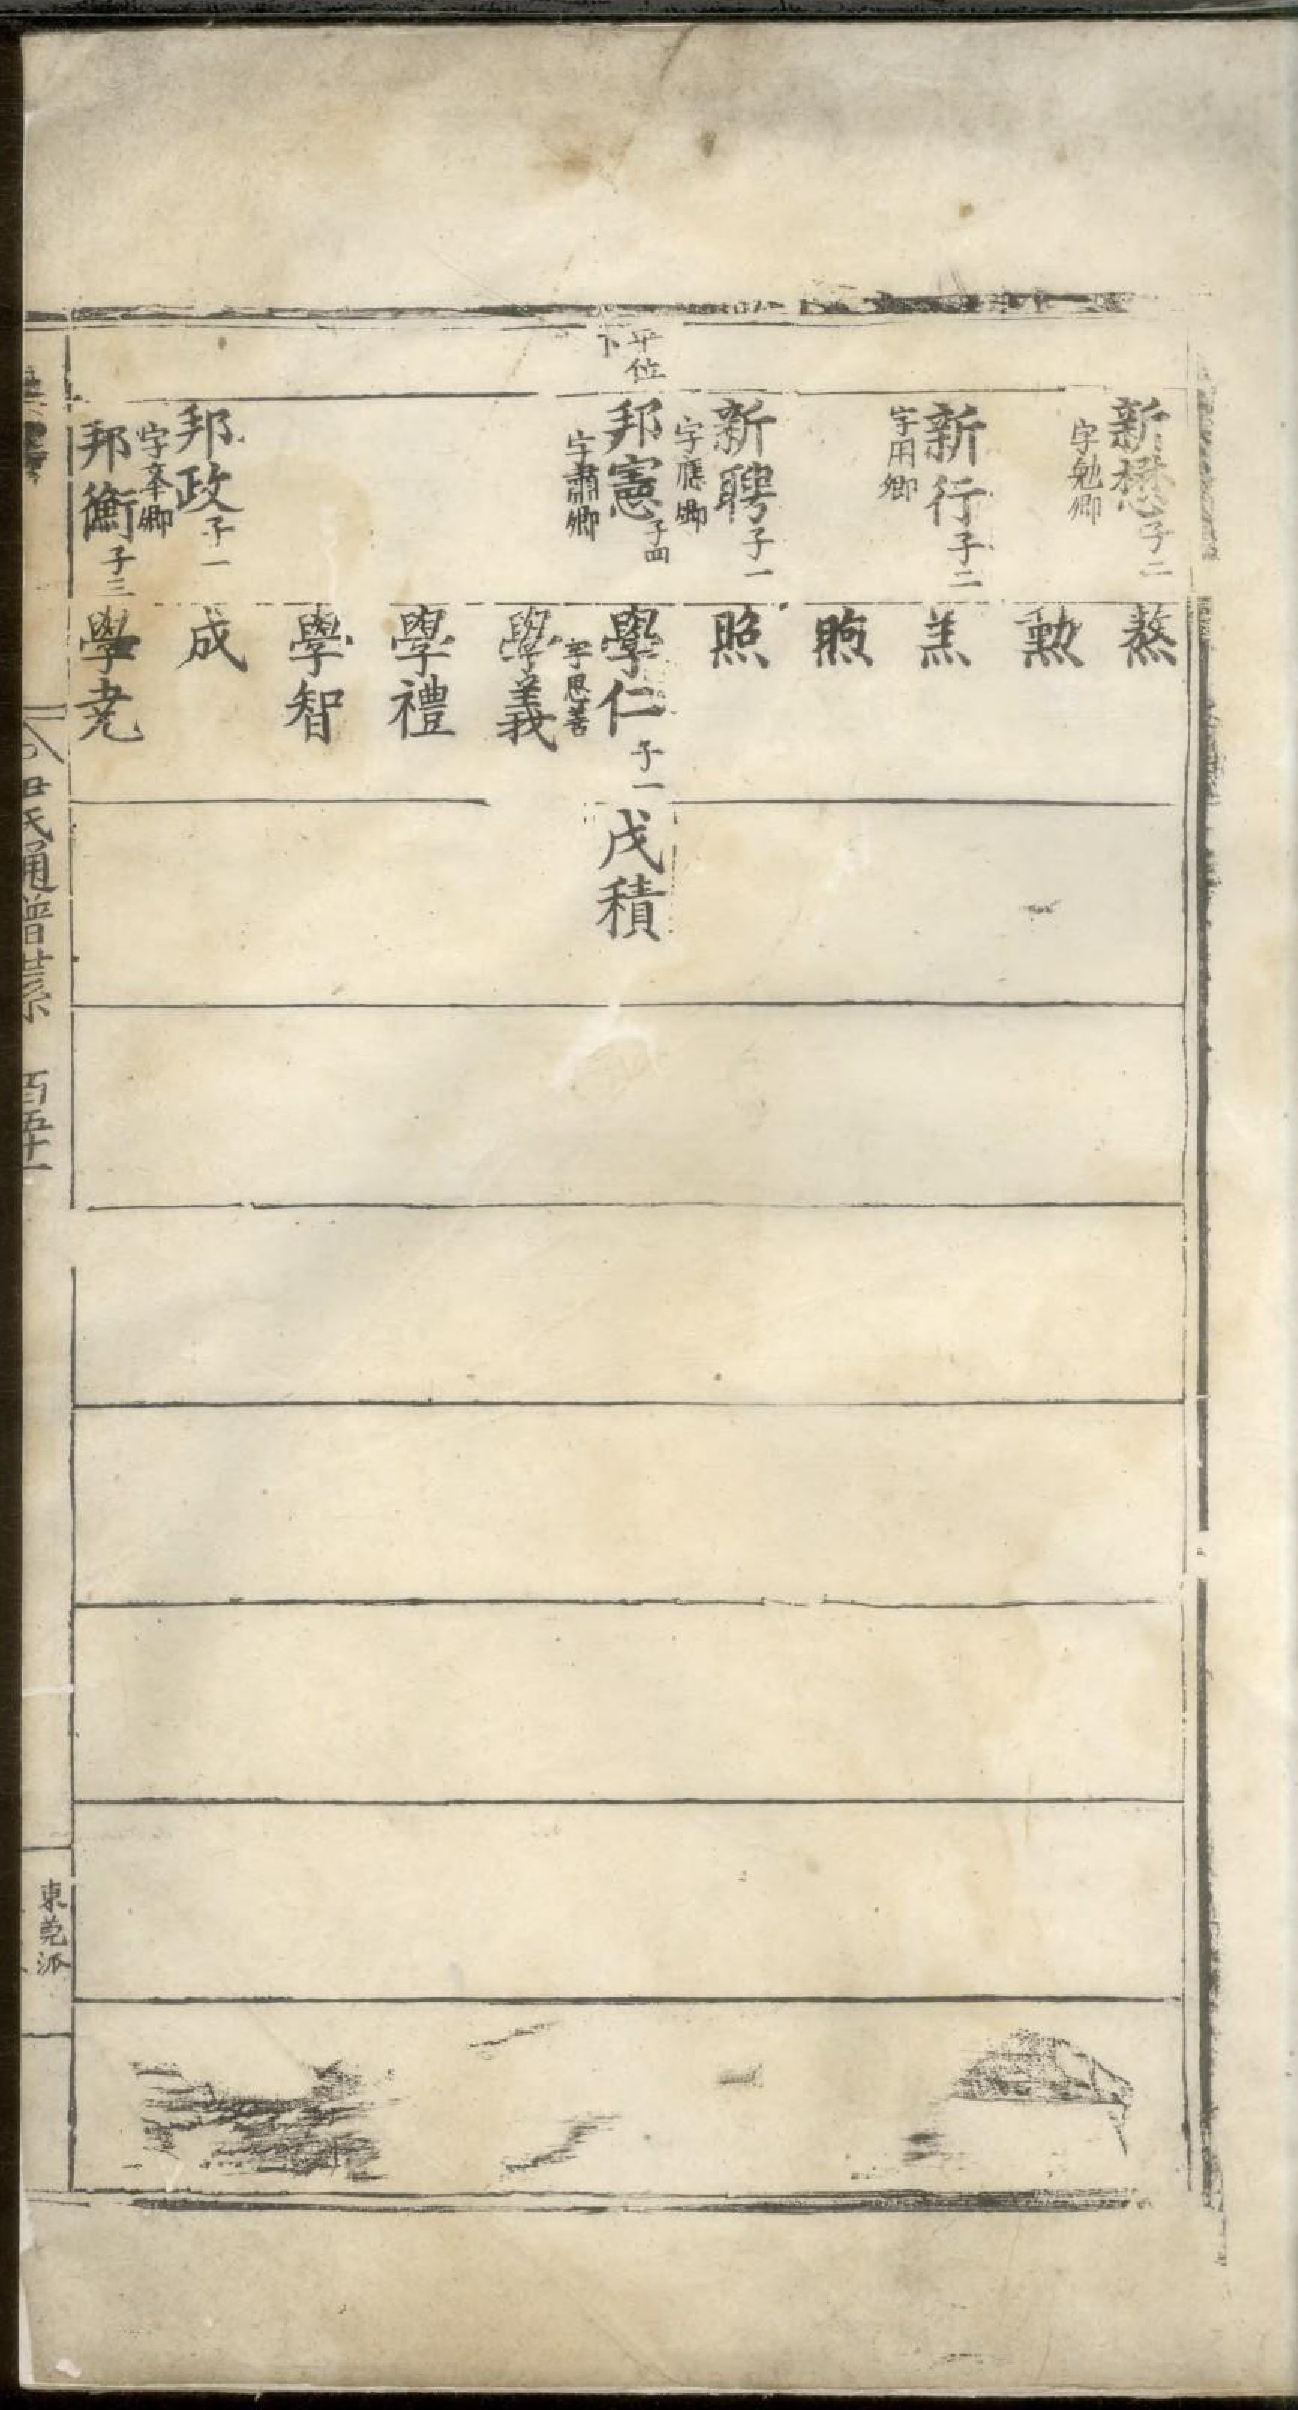 平位
下
新懋子二
字勉卿
新行子二
字用卿
新聘子一
字應卿
邦憲子四
字肅卿
邦政子一
字奉卿
邦衡子三
熬
勲
羔
煦
照
學仁子一
字思善
學義
學禮
學智
成
學尭
戊積
尹氏通譜世系 百五十一
東莞派